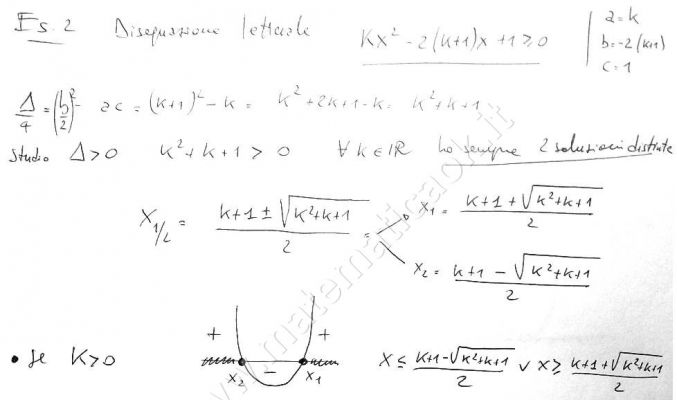 Es. 2 Disequazione letterale Kx² - 2(k+1)x + 1 ≥ 0 | a = k
b = -2(k+1)
c = 1
Δ/4 = (b/2)² - ac = (k+1)² - k = k² + 2k + 1 - k = k² + k + 1
Studio Δ > 0 k² + k + 1 > 0 ∀ k ∈ ℝ ho sempre 2 soluzioni distinte
x1/2 = (k+1 ± √(k²+k+1))/2 = x1 = (k+1 + √(k²+k+1))/2
x2 = (k+1 - √(k²+k+1))/2
+ - +
• Se K > 0 x2 x1 x ≤ (k+1 - √(k²+k+1))/2 ∨ x ≥ (k+1 + √(k²+k+1))/2
www.matematicaok.it